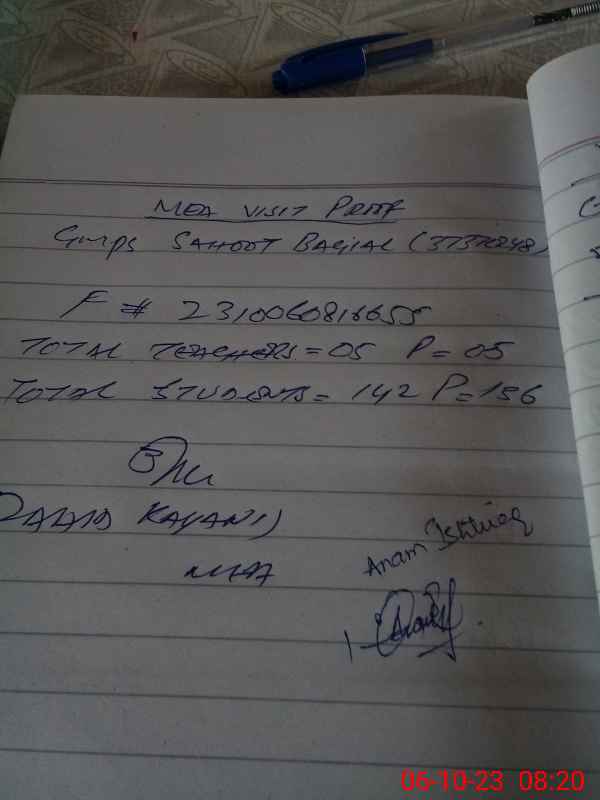 MEA VISIT PROOF
GMPS SAHOOT BAGIAL (37370248)
F # 2310060816655
TOTAL TEACHERS = 05 P = 05
TOTAL STUDENTS = 142 P = 136
KAYANI)
MEA
Anam Ishtiaq
06-10-23 08:20